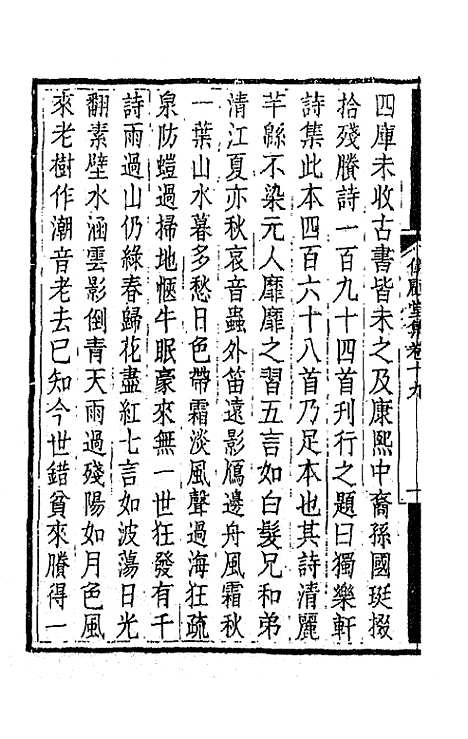 四庫未收古書皆未之及康熙中裔孫國珽掇
拾殘賸詩一百九十四首刊行之題曰獨樂軒
詩集此本四百六十八首乃足本也其詩清麗
芊緜不染元人靡靡之習五言如白髮兄和弟
清江夏亦秋哀音蟲外笛遠影鴈邊舟風霜秋
一葉山水暮多愁日色帶霜淡風聲過海狂疏
泉防螘過掃地愜牛眠豪來無一世狂發有千
詩雨過山仍綠春歸花盡紅七言如波蕩日光
翻素壁水涵雲影倒青天雨過殘陽如月色風
來老樹作潮音老去已知今世錯貧來賸得一
儀顧堂集卷十九